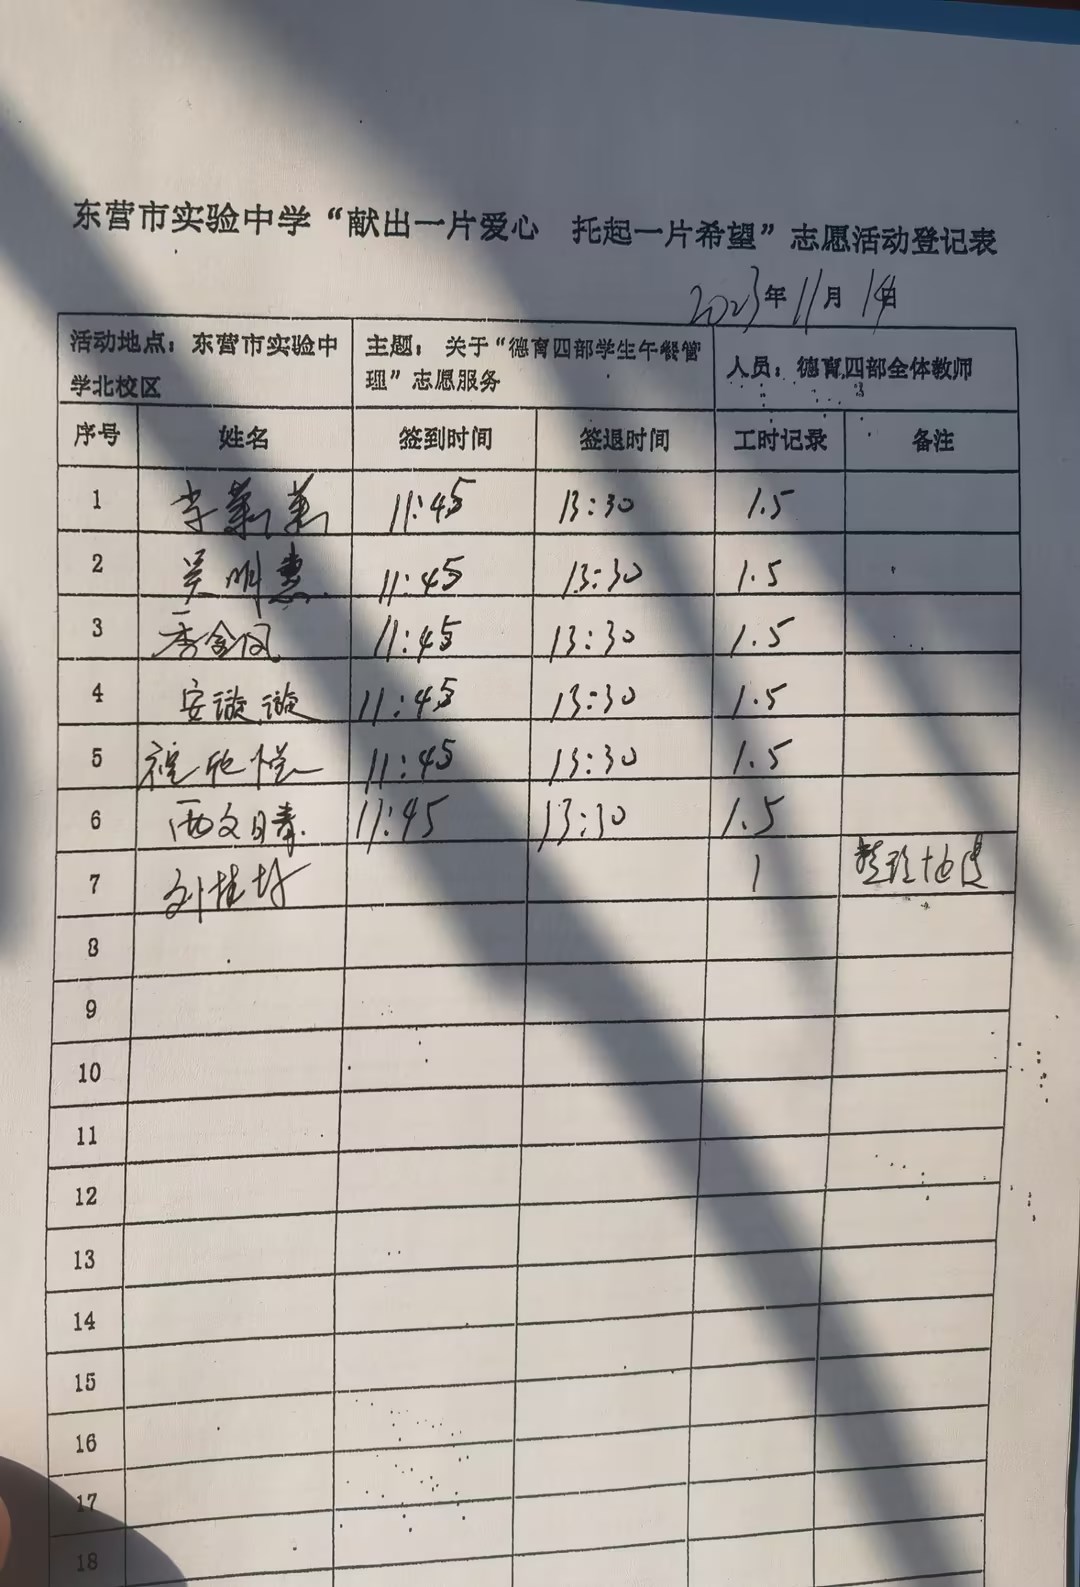 东营市实验中学“献出一片爱心 托起一片希望”志愿活动登记表
2023年11月14日
活动地点：东营市实验中学北校区 主题：关于“德育四部学生午餐管理”志愿服务 人员：德育四部全体教师
序号 姓名 签到时间 签退时间 工时记录 备注
1 李 11:45 13:30 1.5
2 吴明惠 11:45 13:30 1.5
3 季金凤 11:45 13:30 1.5
4 安璇璇 11:45 13:30 1.5
5 11:45 13:30 1.5
6 11:45 13:30 1.5
7 刘桂 1 整理
8
9
10
11
12
13
14
15
16
17
18